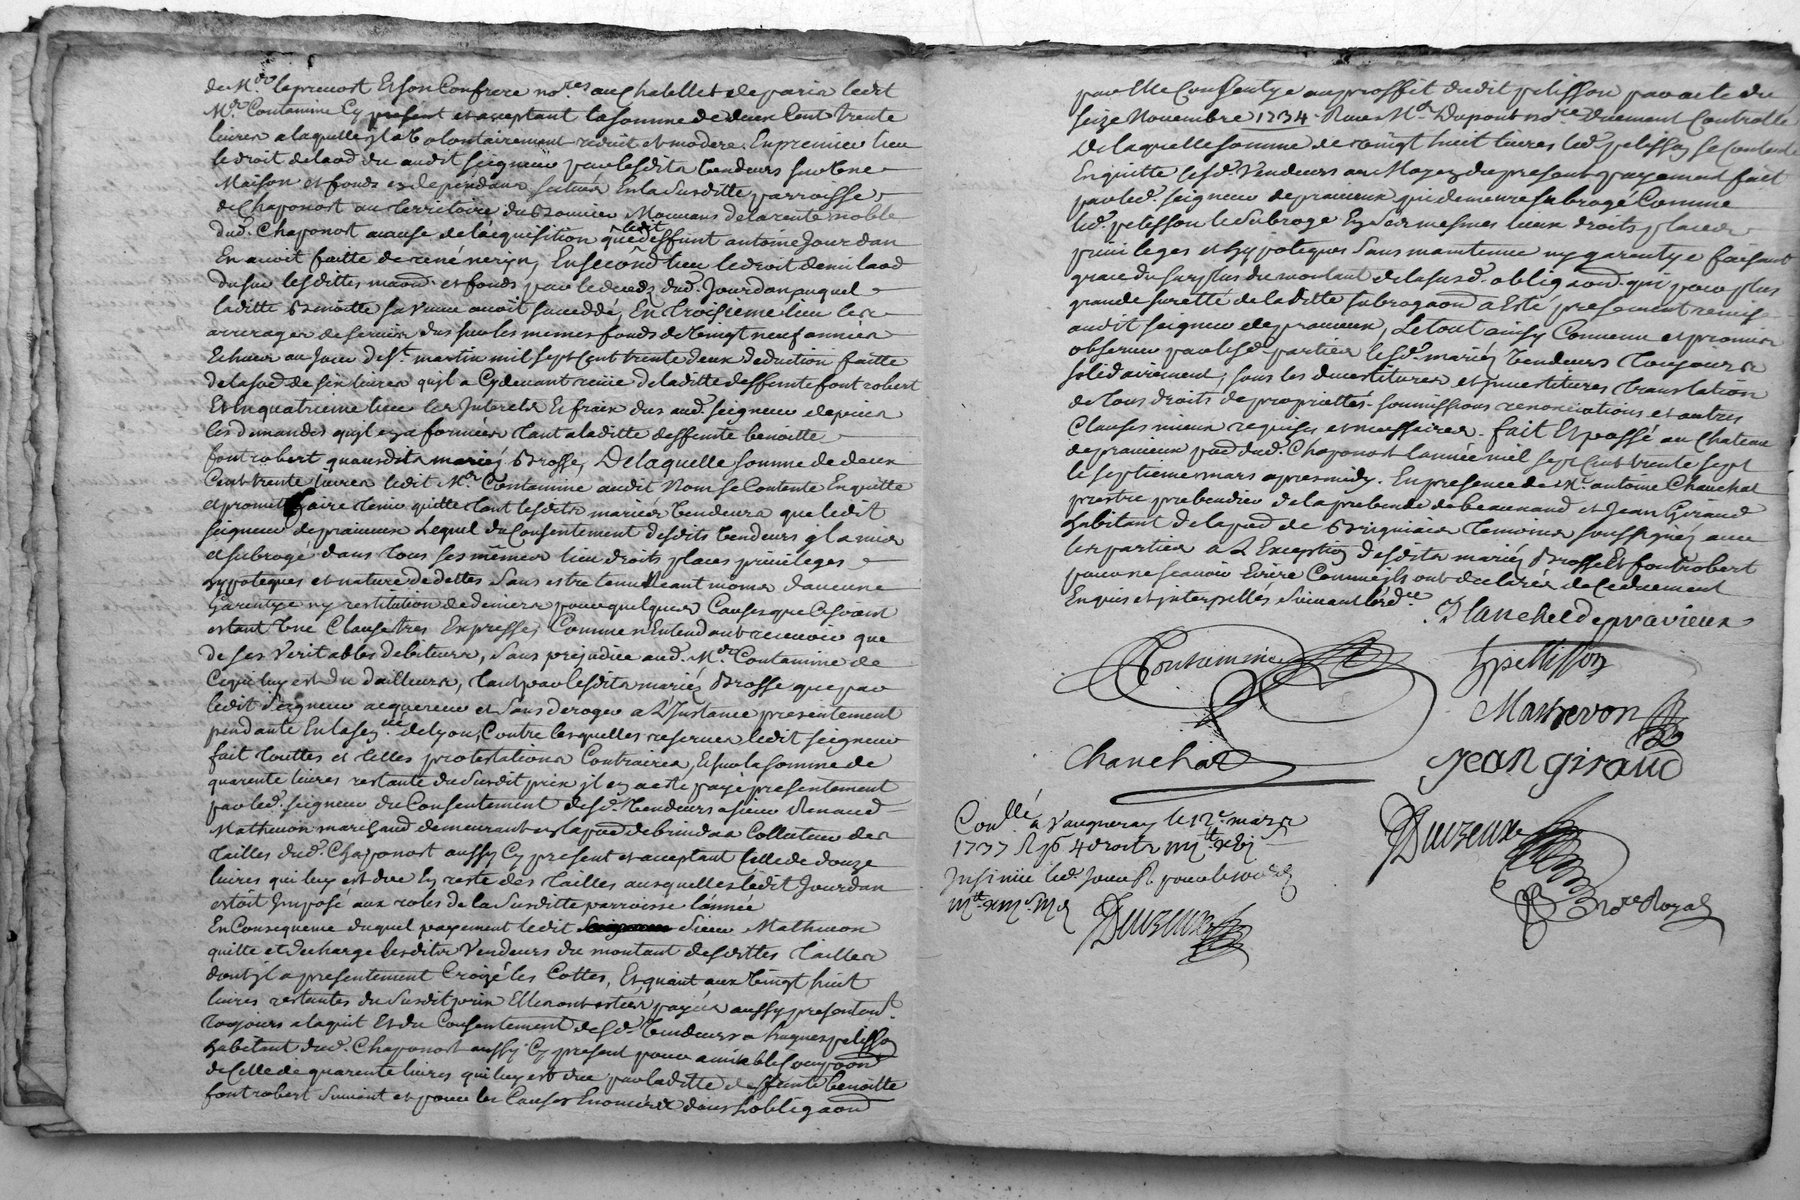 de Me. leprevost Et son Confrere nores. au Chatellet de paris ledit
Mr. Contamine Cy present et acceptant la somme de deux Cent trente
livres a laquelle il a volontairement reduit et modere, En premier lieu
le droit de laod du audit seigneur par lesdits Vendeurs sur une
Maison et fonds en dependans situés En la Susditte parroisse
de Chaponost au territoire du Mouvans de la rente noble
dud. Chaponost a cause de l'acquisition que ledit deffunt antoine Jourdan
En avoit faitte de rené En second lieu le droit de mi laod
du sur lesdittes maon. et fonds par le decedz dud. Jourdan auquel
laditte Benoitte sa veuve avoit succedé, En troisieme lieu les
arrerages de servis dus sur les mesmes fonds de vingt neuf années
Echues au Jour de St. martin mil sept Cent trente deux deduction faitte
de la so de six livres qu'il a Cy devant receüe de laditte deffunte fontrobert
Et En quatrieme lieu les Interets Et fraix dus aud. seigneur depuis
les demandes qu'il en a formées tant a laditte deffunte benoitte
fontrobert qu'ausdits mariés Brosse, De laquelle somme de deux
Cent trente livres ledit Mr. Contamine audit Nom se Contente En quitte
et promet faire tenir quitte tant lesdits mariés Vendeurs que ledit
seigneur de pravieux Lequel du Consentement desdits Vendeurs il a mis
et subrogé dans tous ses mêmes lieu droits places privileges
hypoteques et nature de dettes sans estre tenu neant moins d'aucune
Garentye ny restitution de deniers pour quelques Causes que Ce soit
estant une Clause tres Expresse, Comme n'Entendant recevoir que
de ses Veritables debiteurs, sans prejudice aud. Mr. Contamine de
Ce qui luy est du d'ailleurs, tant par lesdits mariés Brosse que par
ledit seigneur acquereur et sans deroger a L'Instance presentement
pendante En la sen.cée de lyon, Contre lesquelles reserves ledit seigneur
fait touttes et telles protestations Contraires, Et sur la somme de
quarente livres restante du Susdit prix il en a esté payé presentement
par led. seigneur du Consentement desd. Vendeurs a sieur Renaud
Mathevon marchand demeurant en la psse de brindas Collecteur des
tailles dud. Chaponost aussy Cy present et acceptant Celle de douze
livres qui luy est due En reste des tailles ausquelles ledit Jourdan
estoit Imposé aux roles de la Susditte parroisse l'année
En Consequence duquel payement ledit Sieur Mathevon
quitte et decharge lesdits Vendeurs du montant desdittes tailles
dont il a presentement Croizé les Cottes, Et quant aux vingt huit
livres restantes du Susdit prix Elles ont estées payées aussy presentemt.
toujours a l'aquit Et du Consentement desd. Vendeurs a hugues pelisson
habitant dud. Chaponost aussy Cy present pour amiable Compoon
de Celle de quarente livres qui luy est due par laditte deffunte benoitte
fontrobert Suivant et pour les Causes Enoncées dans Lobligaon
par Elle Consentye au proffit dudit pelisson par acte du
seize Novembre 1734. Receu Me. Dupont nore. Duement Controllé
De laquelle somme de vingt huit livres led. pelisson se Contente
En quitte lesd. Vendeurs au Moyen du present payement fait
par led. seigneur de pravieux qui demeure subrogé Comme
led. pelisson le subroge En ses mesmes lieux droits places
privileges et hypoteques sans maintenue ny garentye faisant
grace du surplus du montant de la susd. obligaon. qui pour plus
grande surette de laditte subrogaon a Esté presentement remise
audit seigneur de pravieux, Le tout ainsy Convenu et promis
observer par lesd. parties lesd. mariés Vendeurs toujours
solidairement, sous les devestitures et Investitures translation
de tous droits de proprietté. soumissions renonciations et autres
Clauses mieux requises et necessaires. fait Et passé au Chateau
de pravieux psse dud. Chaponost l'année mil sept Cent trente sept
le septieme mars apres midy. En presence de Me. antoine Chanchat
prestre prebendier de la prebende de beaunand et Jean Giraud
habitant de la psse de Brignais temoins soussignés avec
les parties a L'Exception desdits mariés Brosse Et fontrobert
pour ne scavoir Ecrire Comme ils ont declarés de Ce duement
Enquis et Interpellés Suivant l'ord.ce
Planchet de pravieux
Contamine
hpellisson
Mathevon
Chanchat
Jean giraud
Conllé. a Vaugneray le 12e. mars
1737
Duvzeux
Duvzeux
nore Royal